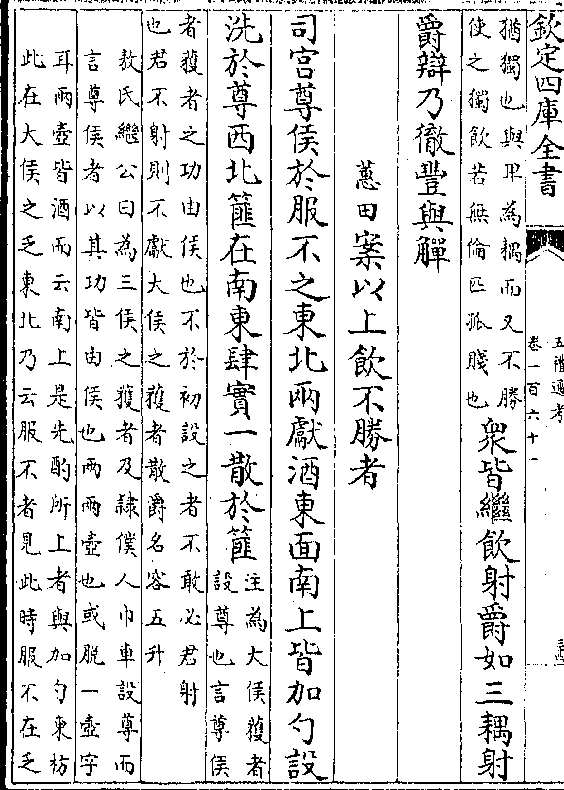 欽定四庫全書
五禮通考
卷一百六十一
猶獨也與畀為耦而又不勝
使之獨飲若無倫匹孤賤也
衆皆繼飲射爵如三耦射
爵辯乃徹豐與觶
蕙田案以上飲不勝者
司宫尊侯於服不之東北兩獻酒東面南上皆加勺設
洗於尊西北篚在南東肆實一散於篚
注為大侯獲者
設尊也言尊侯
者獲者之功由侯也不於初設之者不敢必君射
也君不射則不獻大侯之獲者散爵名容五升
敖氏繼公曰為三侯之獲者及隸僕人巾車設尊而
言尊侯者以其功皆由侯也兩兩壺也或脱一壺字
耳兩壺皆酒而云南上是先酌所上者與加勺東枋
此在大侯之乏東北乃云服不者見此時服不在乏